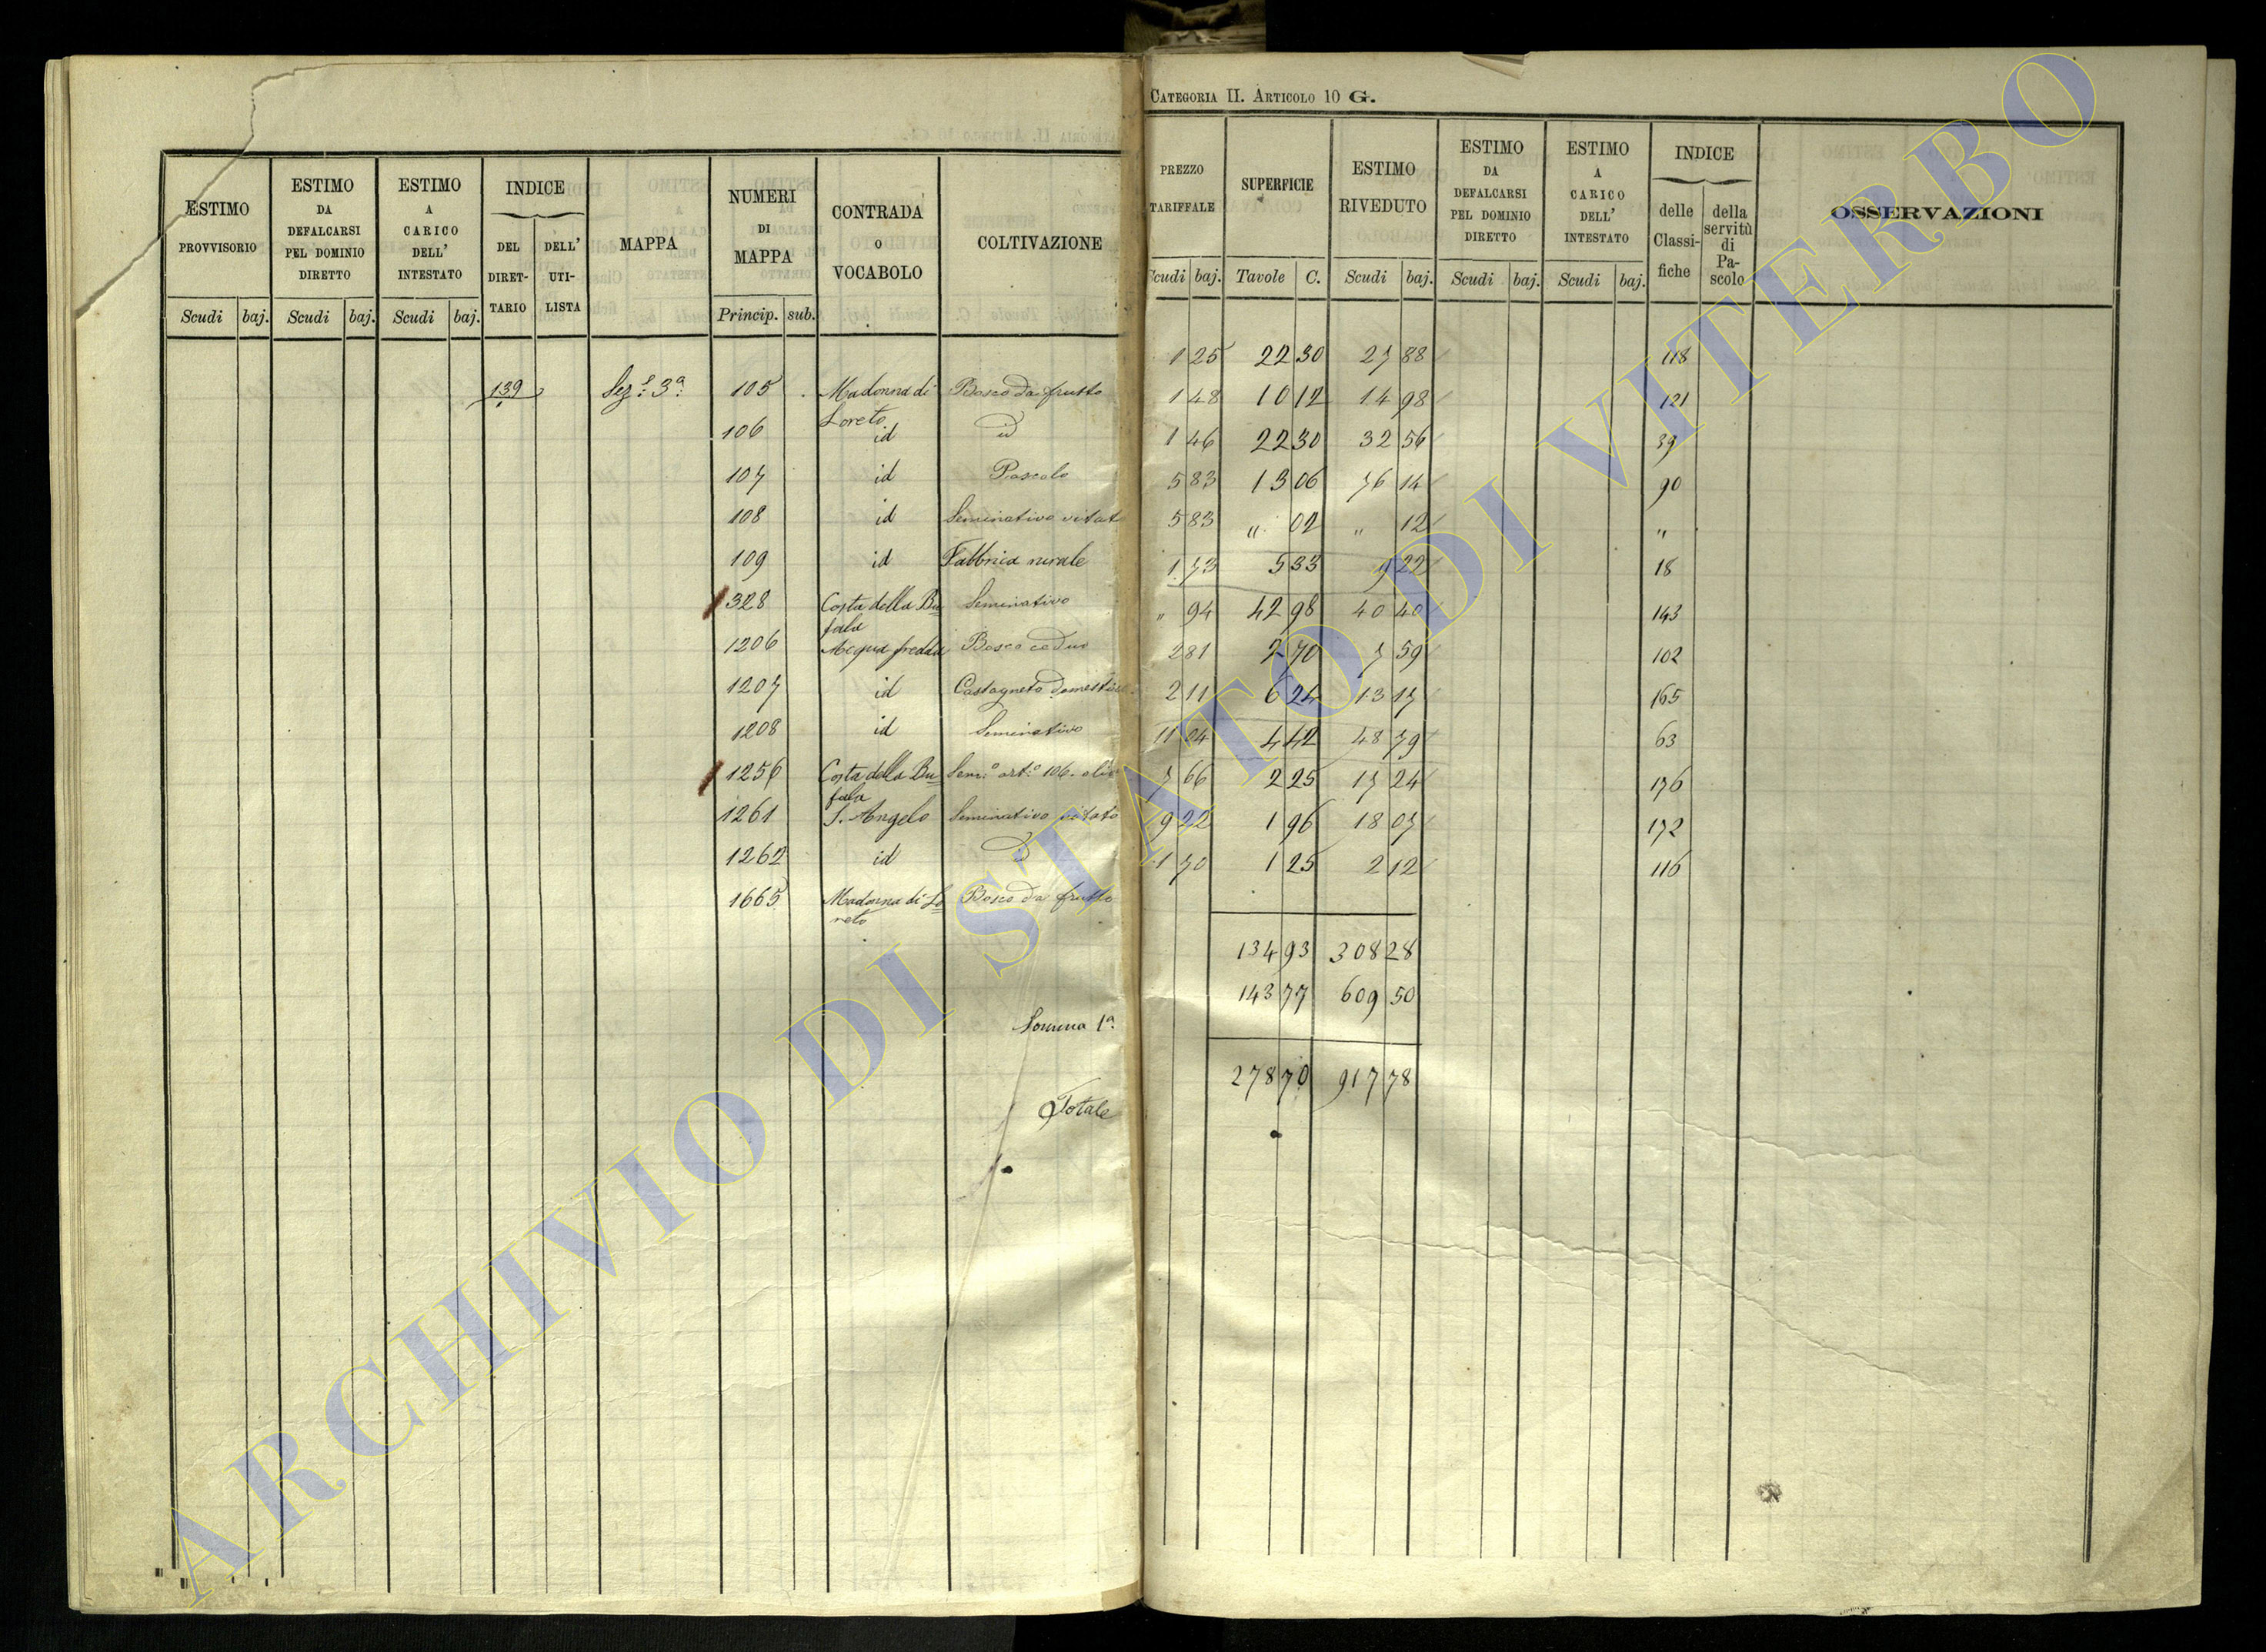 CATEGORIA II. ARTICOLO 10 G.
ESTIMO PROVVISORIO Scudi baj.
ESTIMO DA DEFALCARSI PEL DOMINIO DIRETTO Scudi baj.
ESTIMO A CARICO DELL' INTESTATO Scudi baj.
INDICE DEL DIRETTARIO DELL' UTILISTA
MAPPA
NUMERI DI MAPPA Princip. sub.
CONTRADA O VOCABOLO
COLTIVAZIONE
PREZZO TARIFFALE Scudi baj.
SUPERFICIE Tavole C.
ESTIMO RIVEDUTO Scudi baj.
ESTIMO DA DEFALCARSI PEL DOMINIO DIRETTO Scudi baj.
ESTIMO A CARICO DELL' INTESTATO Scudi baj.
INDICE delle Classifiche della servitù di Pascolo
OSSERVAZIONI
139 Sez.e 3a 105 Madonna di Loreto Bosco da frutto 1 25 22 30 27 88 118
106 id id 1 48 10 12 14 98 121
107 id Pascolo 1 46 22 30 32 56 39
108 id Seminativo vitato 5 83 13 06 76 14 90
109 id Fabbrica rurale 5 83 " 02 " 12 "
328 Costa della Bufala Seminativo 1 73 5 33 9 22 18
1206 Acqua fredda Bosco ceduo " 94 42 98 40 40 143
1207 id Castagneto domestico 2 81 2 70 7 59 102
1208 id Seminativo 2 11 6 24 13 17 165
1256 Costa della Bufala Sem.o art.o 106. oliv 11 04 4 42 48 79 63
1261 S. Angelo Seminativo vitato 7 66 2 25 17 24 176
1262 id id 9 22 1 96 18 07 172
1665 Madonna di Loreto Bosco da frutto 1 70 1 25 2 12 116
134 93 308 28
Somma 1a 143 77 609 50
Totale 278 70 917 78
ARCHIVIO DI STATO DI VITERBO